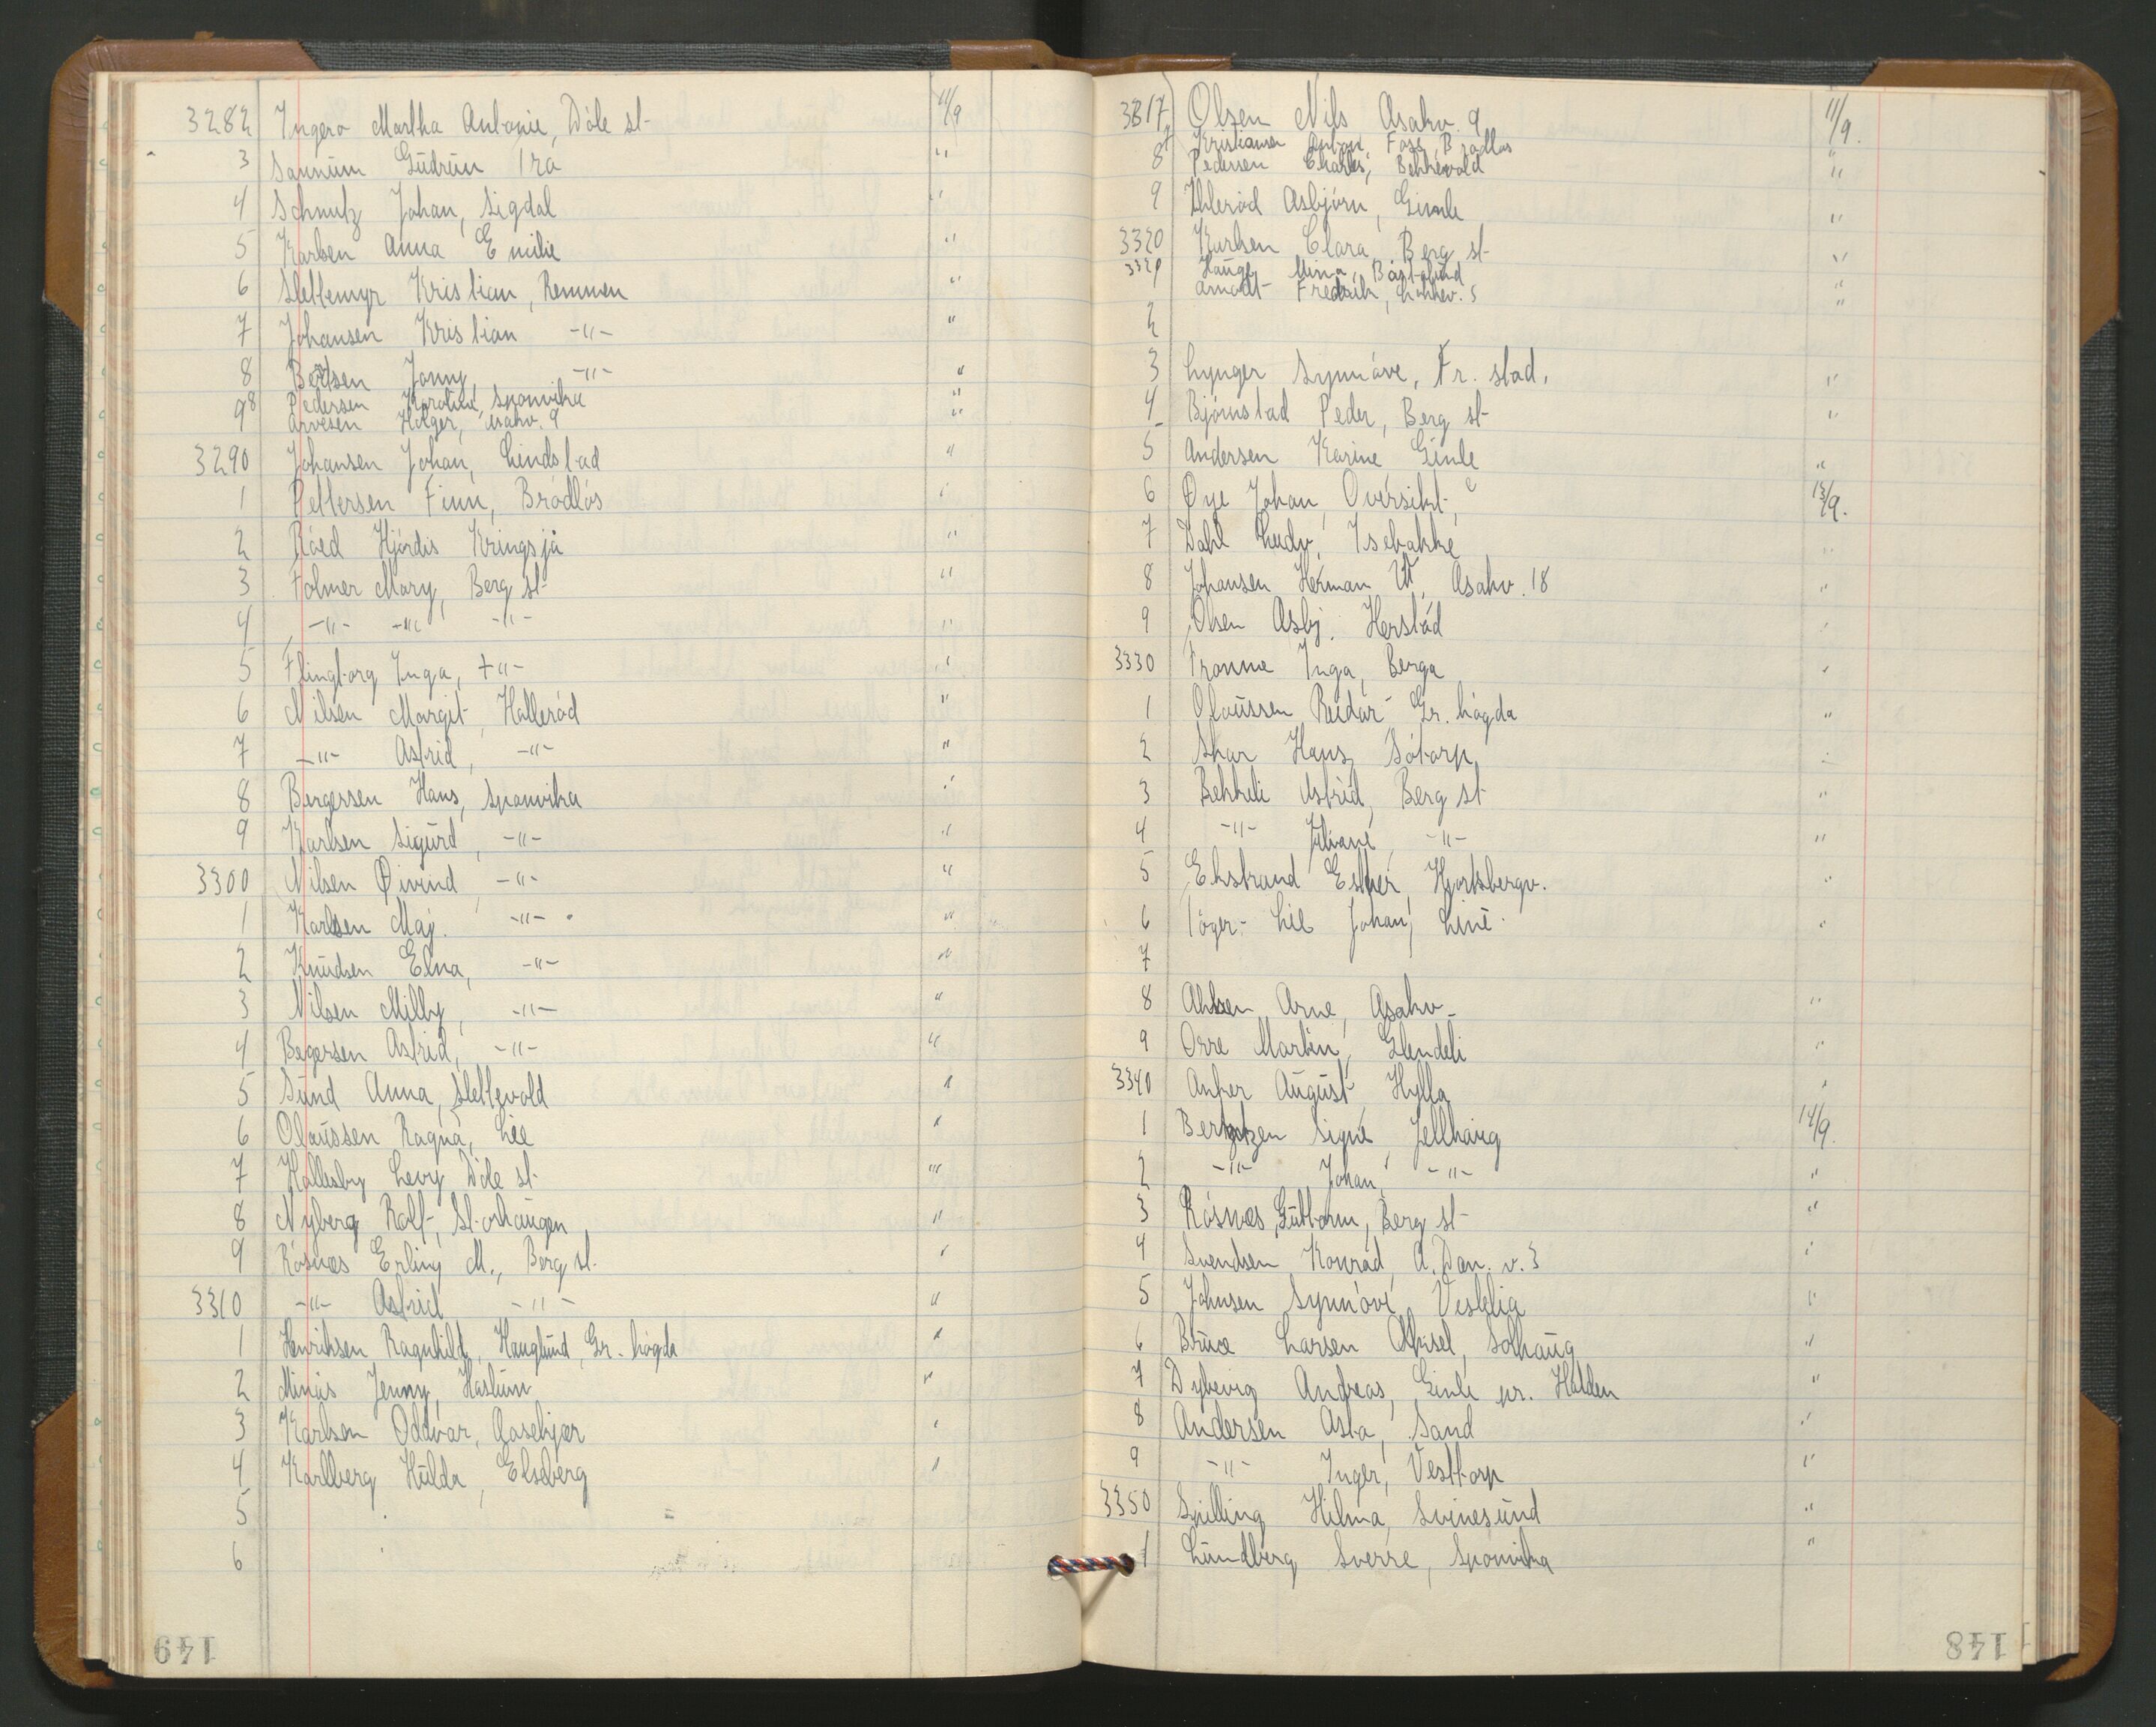 3282 Ingerø Martha Antonie, Dále st- 11/9
3 Sannum Gudrun Ira "
4 Schmutz Johan, Sigdal "
5 Karlsen Anna Emilie "
6 Slettemyr Kristian, Remmen "
7 Johansen Kristian -"- "
8 Berntsen Jonny, -"- "
98 Pedersen Karoline, Sponvika "
Arvesen Holger, Asakv. 9 "
3290 Johansen Johan, Lindstad "
1 Pettersen Finn, Brødløs "
2 Røed Hjørdis Kringsjå "
3 Holmer Mary, Berg st- "
4 -"- -"- -"- "
5 Flingtorg Inga, -"- "
6 Nilsen Margit, Hallerød "
7 -"- Astrid, -"- "
8 Bergersen Hans, Sponvika "
9 Karlsen Sigurd, -"- "
3300 Nilsen Øivind, -"- "
1 Karlsen Maj. -"- "
2 Knudsen Elna, -"- "
3 Nilsen Milly, -"- "
4 Begersen Astrid, -"- "
5 Sund Anna, Slettevold "
6 Olaussen Ragna, Lie "
7 Hallesby Levy Dále st- "
8 Nyberg Rolf, Storhaugen "
9 Røsnæs Erling M., Berg st. "
3310 -"- Astrid -"- "
1 Henriksen Ragnhild, Hauglund, Gr. høgda "
2 Minás Jenny, Haslum "
3 Karlsen Oddvar, Aasebjør "
4 Karlberg Hulda, Elseberg "
5
6
149
3317 Olsen Nils Asakv. 9 11/9.
Kristiansen Anton, Foss, Brødløs "
8 Pedersen Charles, Bekkevold "
9 Ihlerød Asbjørn, Gimle "
3320 Karlsen Clara, Berg st- "
3321 Hauge, Mina, Båstadlund "
Arnodt Fredrik, Likkev. 5 "
2
3 Lynger Synnøve, Fr. stad. "
4 Bjørnstad Peder, Berg st- "
5 Andersen Karine Gimle "
6 Øye Johan, Oversikt, 13/9.
7 Dahl Ludv, Isebakke "
8 Johansen Herman W, Asakv. 18 "
9 Olsen Asbj. Herstád "
3330 Tronne Inga, Berga "
1 Olaussen Reidar Gr. høgda "
2 Skar Hans, Søtorp "
3 Bekkeli Astrid, Berg st "
4 -"- Juliane, -"- "
5 Ekstrand Esther, Hjortsbergv. "
6 Tøger- Lie Johan, Line "
7
8 Ahlsen Arne, Asakv- "
9 Orre Martin, Glendeli "
3340 Anker August, Hylla "
1 Berntzen Signe, Fjellhaug 14/9.
2 -"- Johan, -"- "
3 Røsnæs, Guttorm, Berg st- "
4 Svendsen Konrad, A. Dan. v. 3 "
5 Johnsen Synnøve Vestlia "
6 Bruce Larsen Aksel, Solhaug "
7 Dybevig Andreas, Gimle pr. Halden "
8 Andersen Asta, Sand "
9 -"- Inger, Vesttorp "
3350 Spilling Hilma, Svinesund "
1 Lundberg Sverre, Sponvika "
148